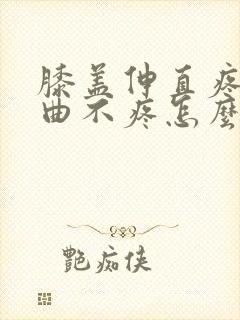 膝盖伸直疼
曲不疼怎麼
艷痴侠